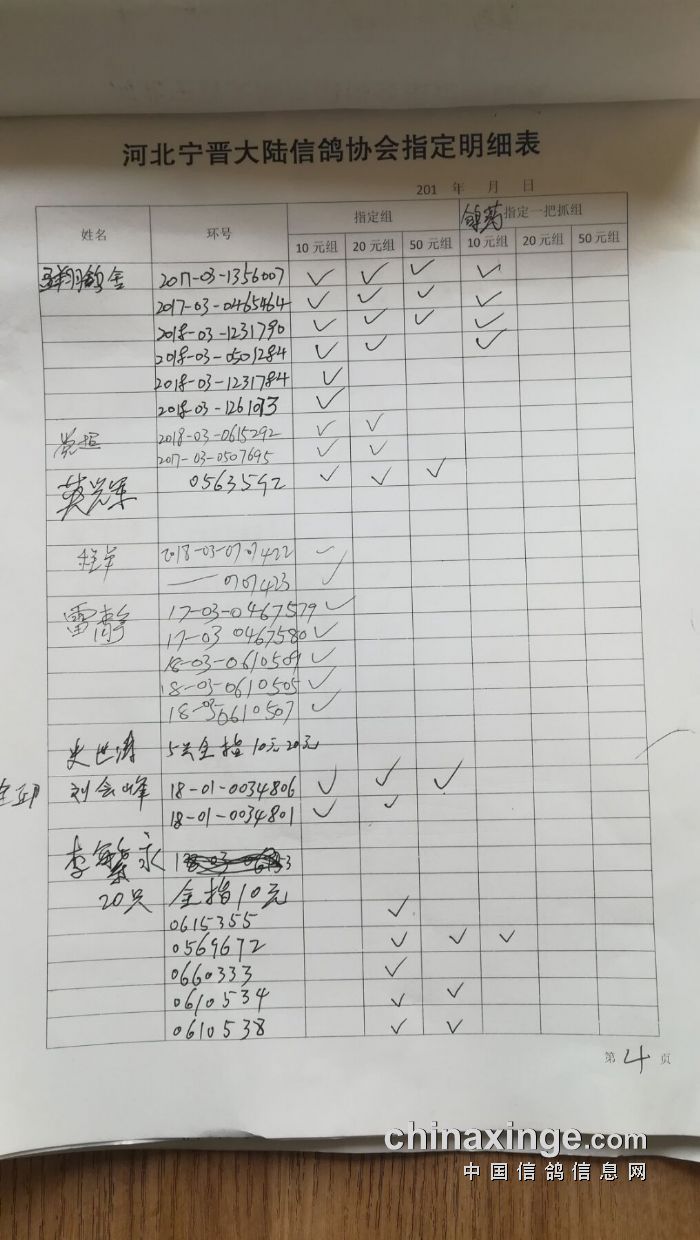 河北宁晋大陆信鸽协会指定明细表
201 年 月 日
姓名 环号 指定组 指定一把抓组
10元组 20元组 50元组 10元组 20元组 50元组
翔鸽舍 2017-03-1356007 ✓ ✓ ✓ ✓
2017-03-0465464 ✓ ✓ ✓ ✓
2018-03-1231790 ✓ ✓ ✓ ✓
2018-03-0501284 ✓ ✓ ✓
2018-03-1231784 ✓
2018-03- ✓
2018-03-0615292 ✓ ✓
2017-03-0507695 ✓ ✓
0563592 ✓ ✓ ✓
2018-03-0707422 ✓
— 0707423 ✓
雷静 17-03-0467579 ✓
17-03 0467580 ✓
18-03-0610509 ✓
18-03-0610505 ✓
18-03-0610507 ✓
史世涛 5只全指10元20元
刘会峰 18-01-0034806 ✓ ✓ ✓
18-01-0034801 ✓ ✓
李繁永
20只 全指10元
0615355 ✓
0569672 ✓ ✓ ✓
0660333 ✓
0610534 ✓ ✓
0610538 ✓ ✓
第4页
chinaxinge.com
中国信鸽信息网